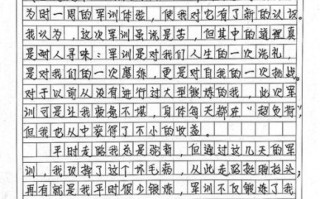 为时一周的军训体验，使我对它有了新的认识
我认为，这次军训虽说是苦，但其中的道理真
是耐人寻味：军训是对我们人生的一次洗礼，
是对我们的一次磨练，更是对自我的一次挑战
对于以前从没有进行过大型锻炼的我，此次军
训可是让我疲惫不堪，身体每天都在“超负荷”
但我从中获得了不小的收益。
平时走路我总是驼背，但通过这几天的军
训，我改掉了这个坏毛病，从此走路挺胸抬头
再有就是我平时很少锻炼，军训不仅锻炼了我